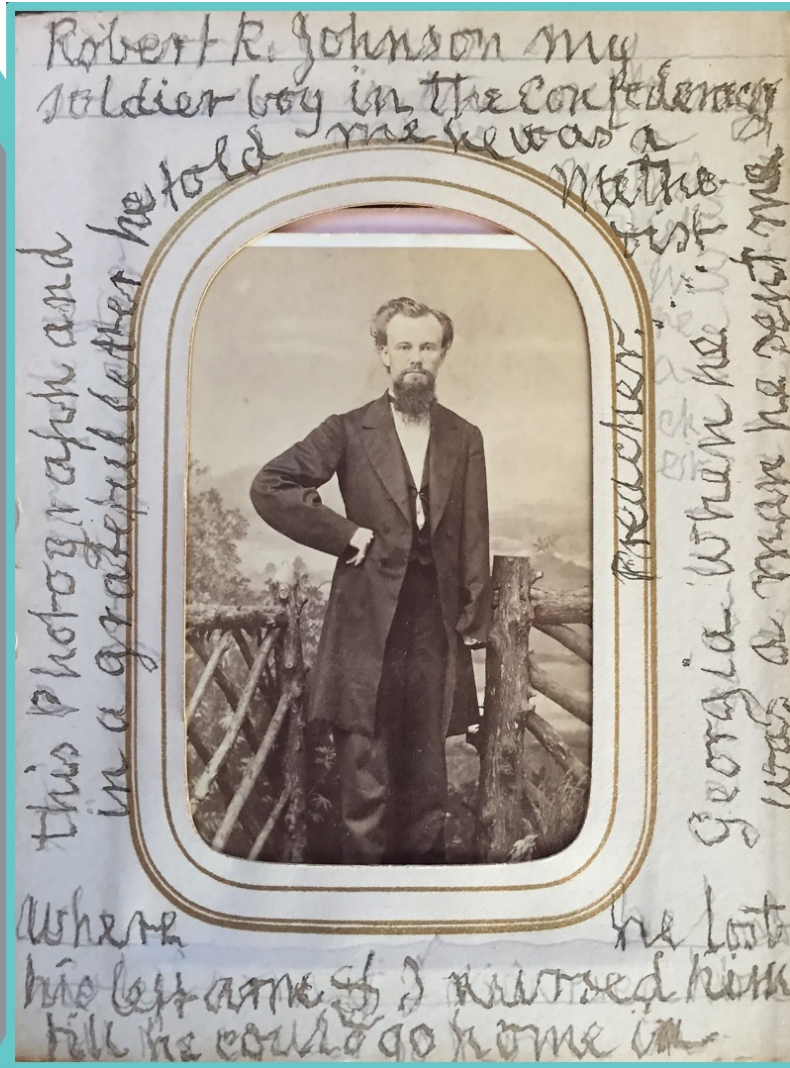 Robert R. Johnson my
soldier boy in the Confederacy
where he lost
his left arm & I nursed him
till he could go home in
Georgia. When he
was a man he sent me
this Photograph and
in a grateful letter he told me he was a
Metho-
dist
Preacher.